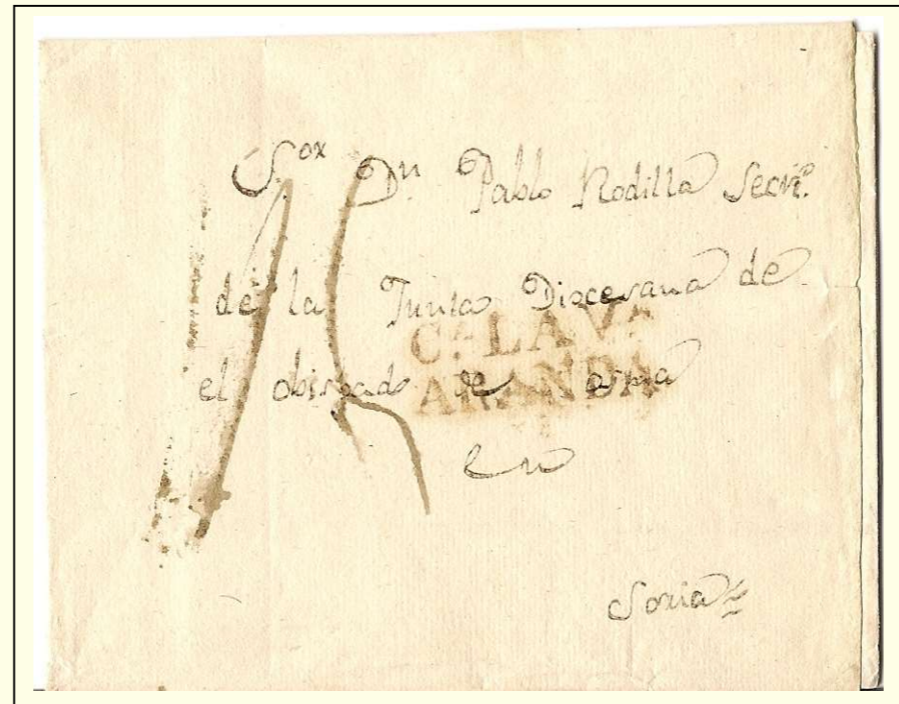 S.or Dn. Pablo Rodilla Secrio.
de la Junta Diocesana de
el obispado de osma
C.LA VA
ARANDA
en
Soria
15